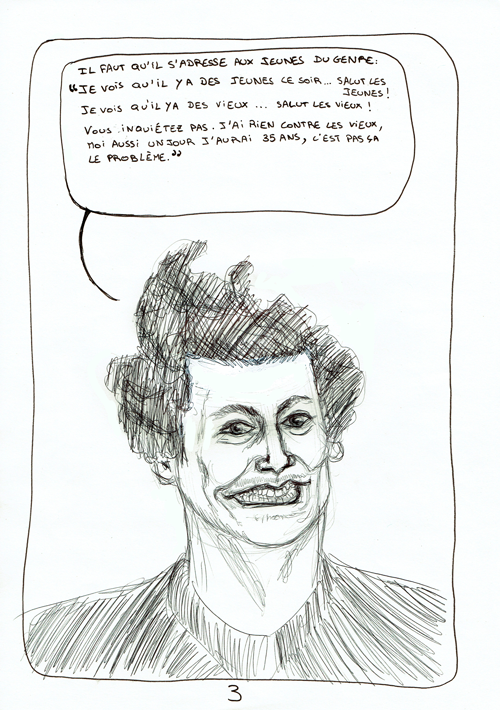 IL FAUT QU'IL S'ADRESSE AUX JEUNES DU GENRE:
“JE VOIS QU'IL Y A DES JEUNES CE SOIR... SALUT LES
JEUNES!
JE VOIS QU'IL Y A DES VIEUX ... SALUT LES VIEUX !
VOUS INQUIÉTEZ PAS. J'AI RIEN CONTRE LES VIEUX,
MOI AUSSI UN JOUR J'AURAI 35 ANS, C'EST PAS ÇA
LE PROBLÈME.”
3